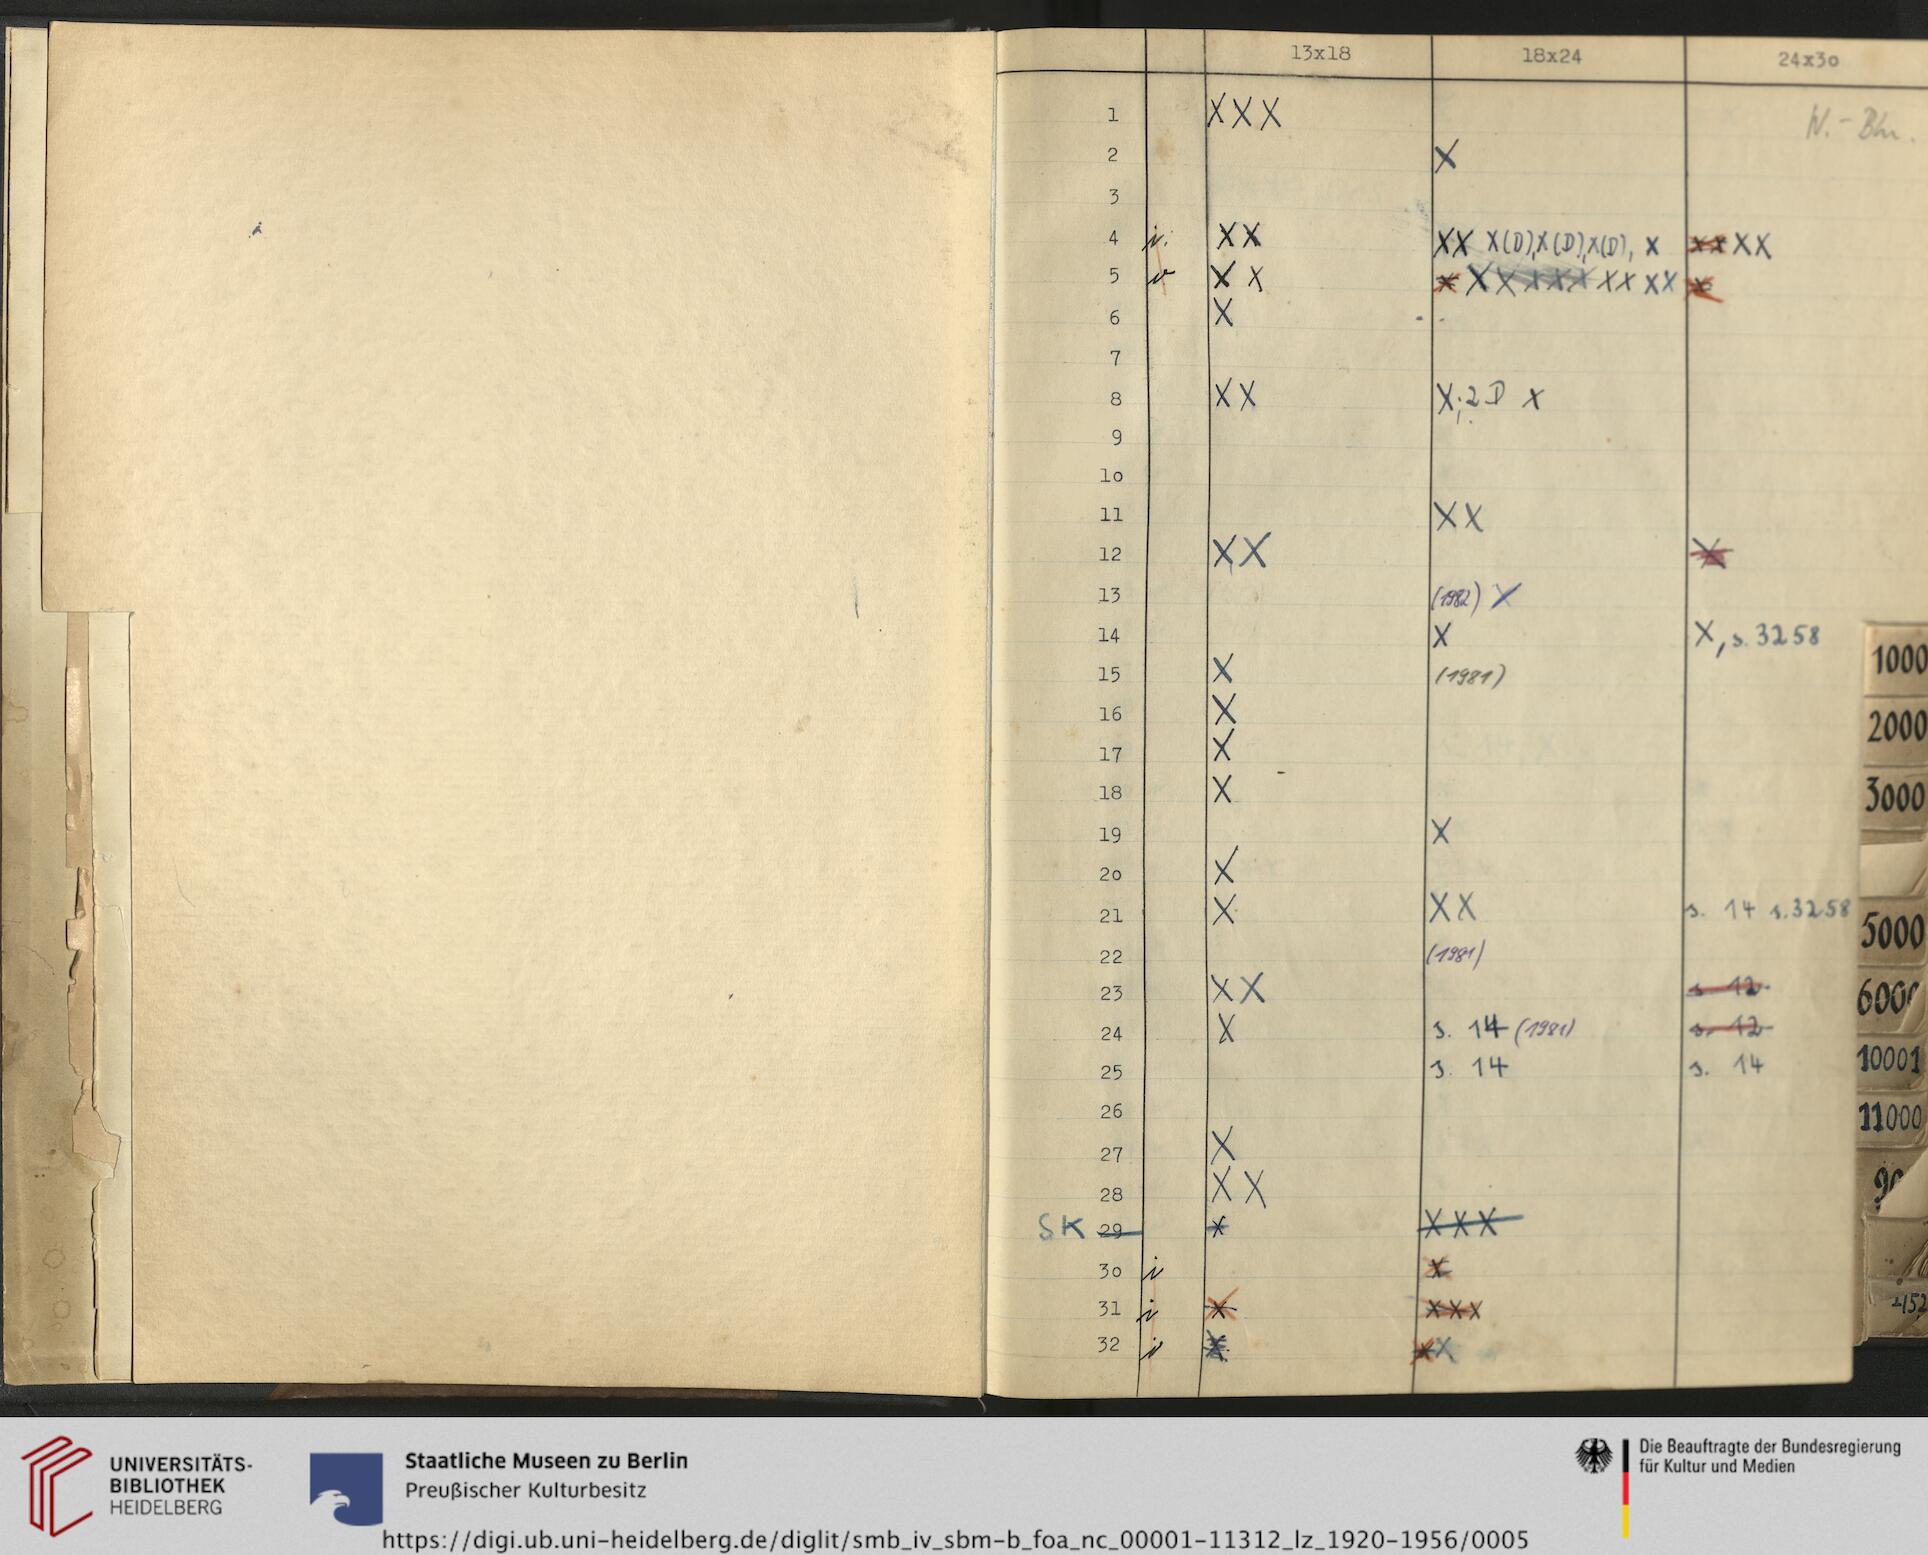 13x18 18x24 24x30
1 XXX
2 X
3
4 XX XX X(D),X(D),X(D), X XXXX
5 X X X X X X X X X X X X X
6 X
7
8 XX X; 2 D X
9
10
11 XX
12 XX X
13 (1982) X
14 X X, s. 3258
15 X (1981)
16 X
17 X
18 X
19 X
20 X
21 X XX s. 14 s. 3258
22 (1981)
23 XX s. 12
24 X s. 14 (1981) s. 12
25 s. 14 s. 14
26
27 X
28 XX
SK 29 X XXX
30 i X
31 i X XXX
32 i X XX
1000
2000
3000
5000
6000
10001
11000
UNIVERSITÄTS-
BIBLIOTHEK
HEIDELBERG
Staatliche Museen zu Berlin
Preußischer Kulturbesitz
Die Beauftragte der Bundesregierung
für Kultur und Medien
https://digi.ub.uni-heidelberg.de/diglit/smb_iv_sbm-b_foa_nc_00001-11312_lz_1920-1956/0005